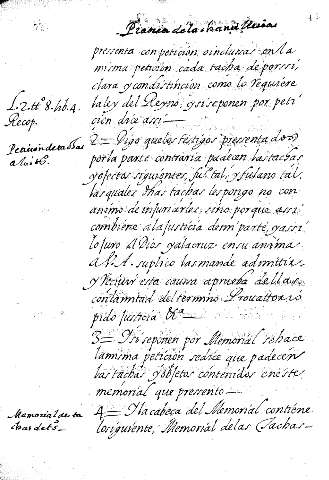 Pratica de la Chancilleria
presenta con peticion o inclusas en la
misma peticion cada tacha de por si i
clara y con distincion como lo requiere
L. 2. tt.º 8. lib. 4.
la ley del Reyno, y si se ponen por peti
Recop.
cion dice assi
Peticion de tachas
2= Digo que los testigos presentados
por la parte contraria padecen las tachas
y efectos siguientes, fu.º tal, y fulano tal,
las quales dhas tachas les pongo no con
animo de injuriarles, sino porque assi
combiene a la justicia de mi parte, y assi
lo juro a Dios y a la cruz en su anima
A V. A. suplico las mande admittir
y recivir esta causa a prueba de ellas
con la mitad del termino Provattorio
pido justicia &.ª
3= I si se ponen por Memorial se hace
la misma peticion se dice que padecen
las tachas y objetos contenidos en este
memorial que presento
Memorial de ta
4= I la cabeca del Memorial contiene
chas de t.º
lo siguiente, Memorial de las Tachas